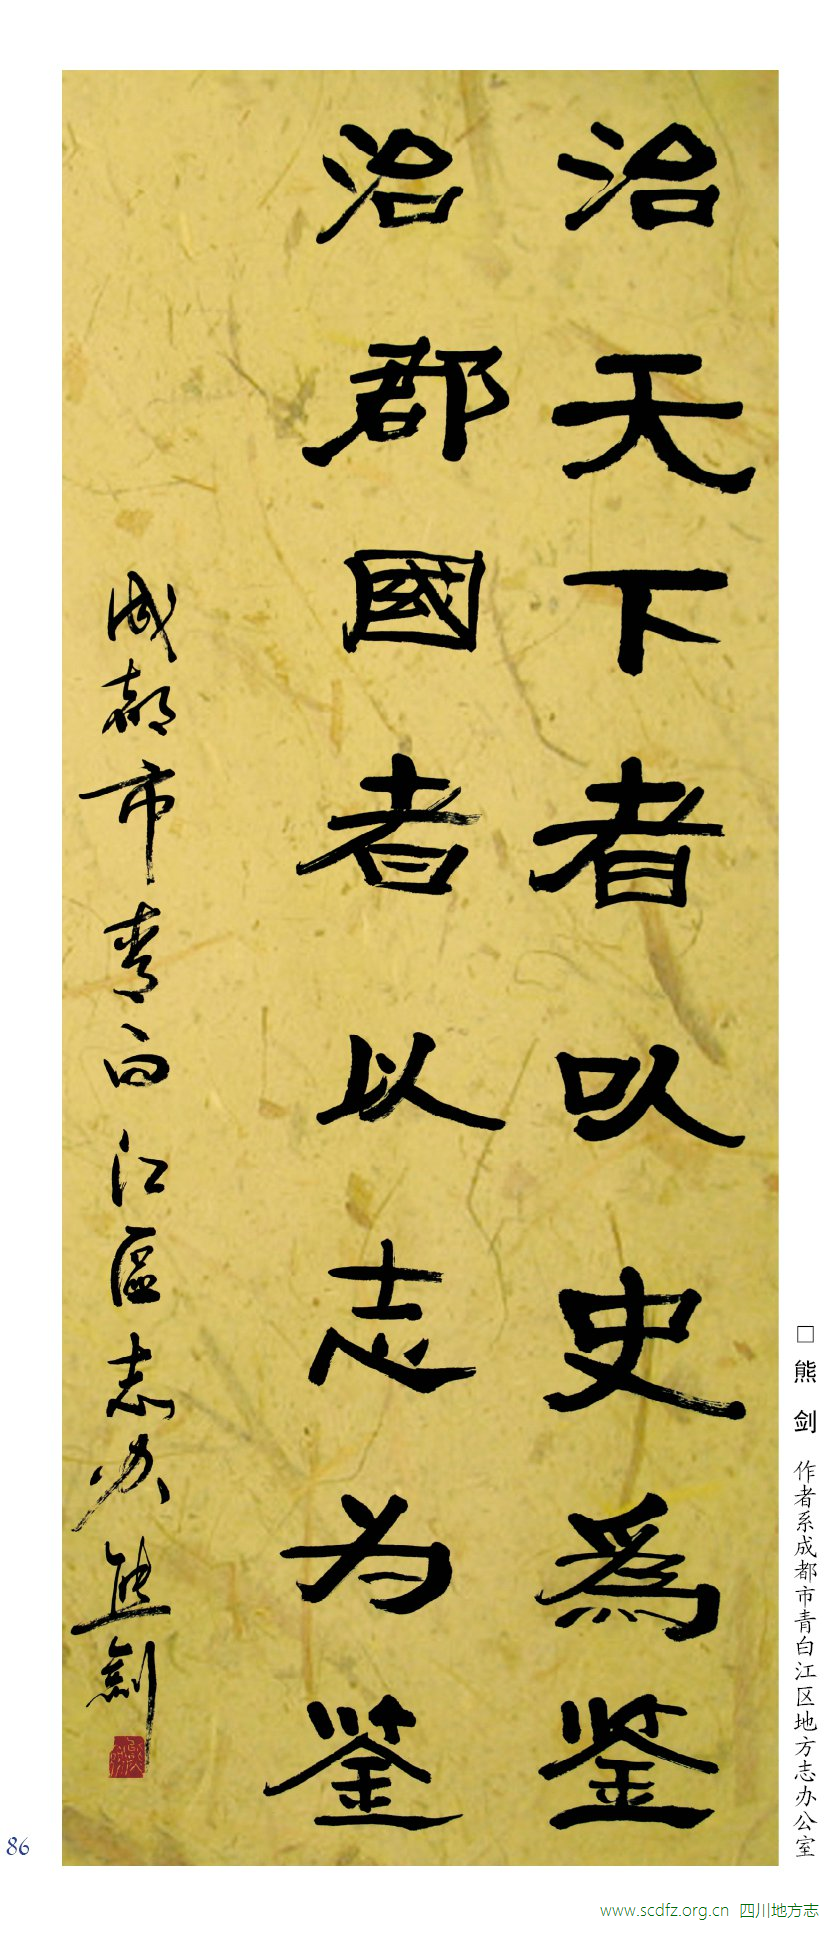 治天下者以史爲鉴
治郡國者以志为鉴
成都市青白江區志办熊劍
□熊 剑 作者系成都市青白江区地方志办公室
86
www.scdfz.org.cn 四川地方志